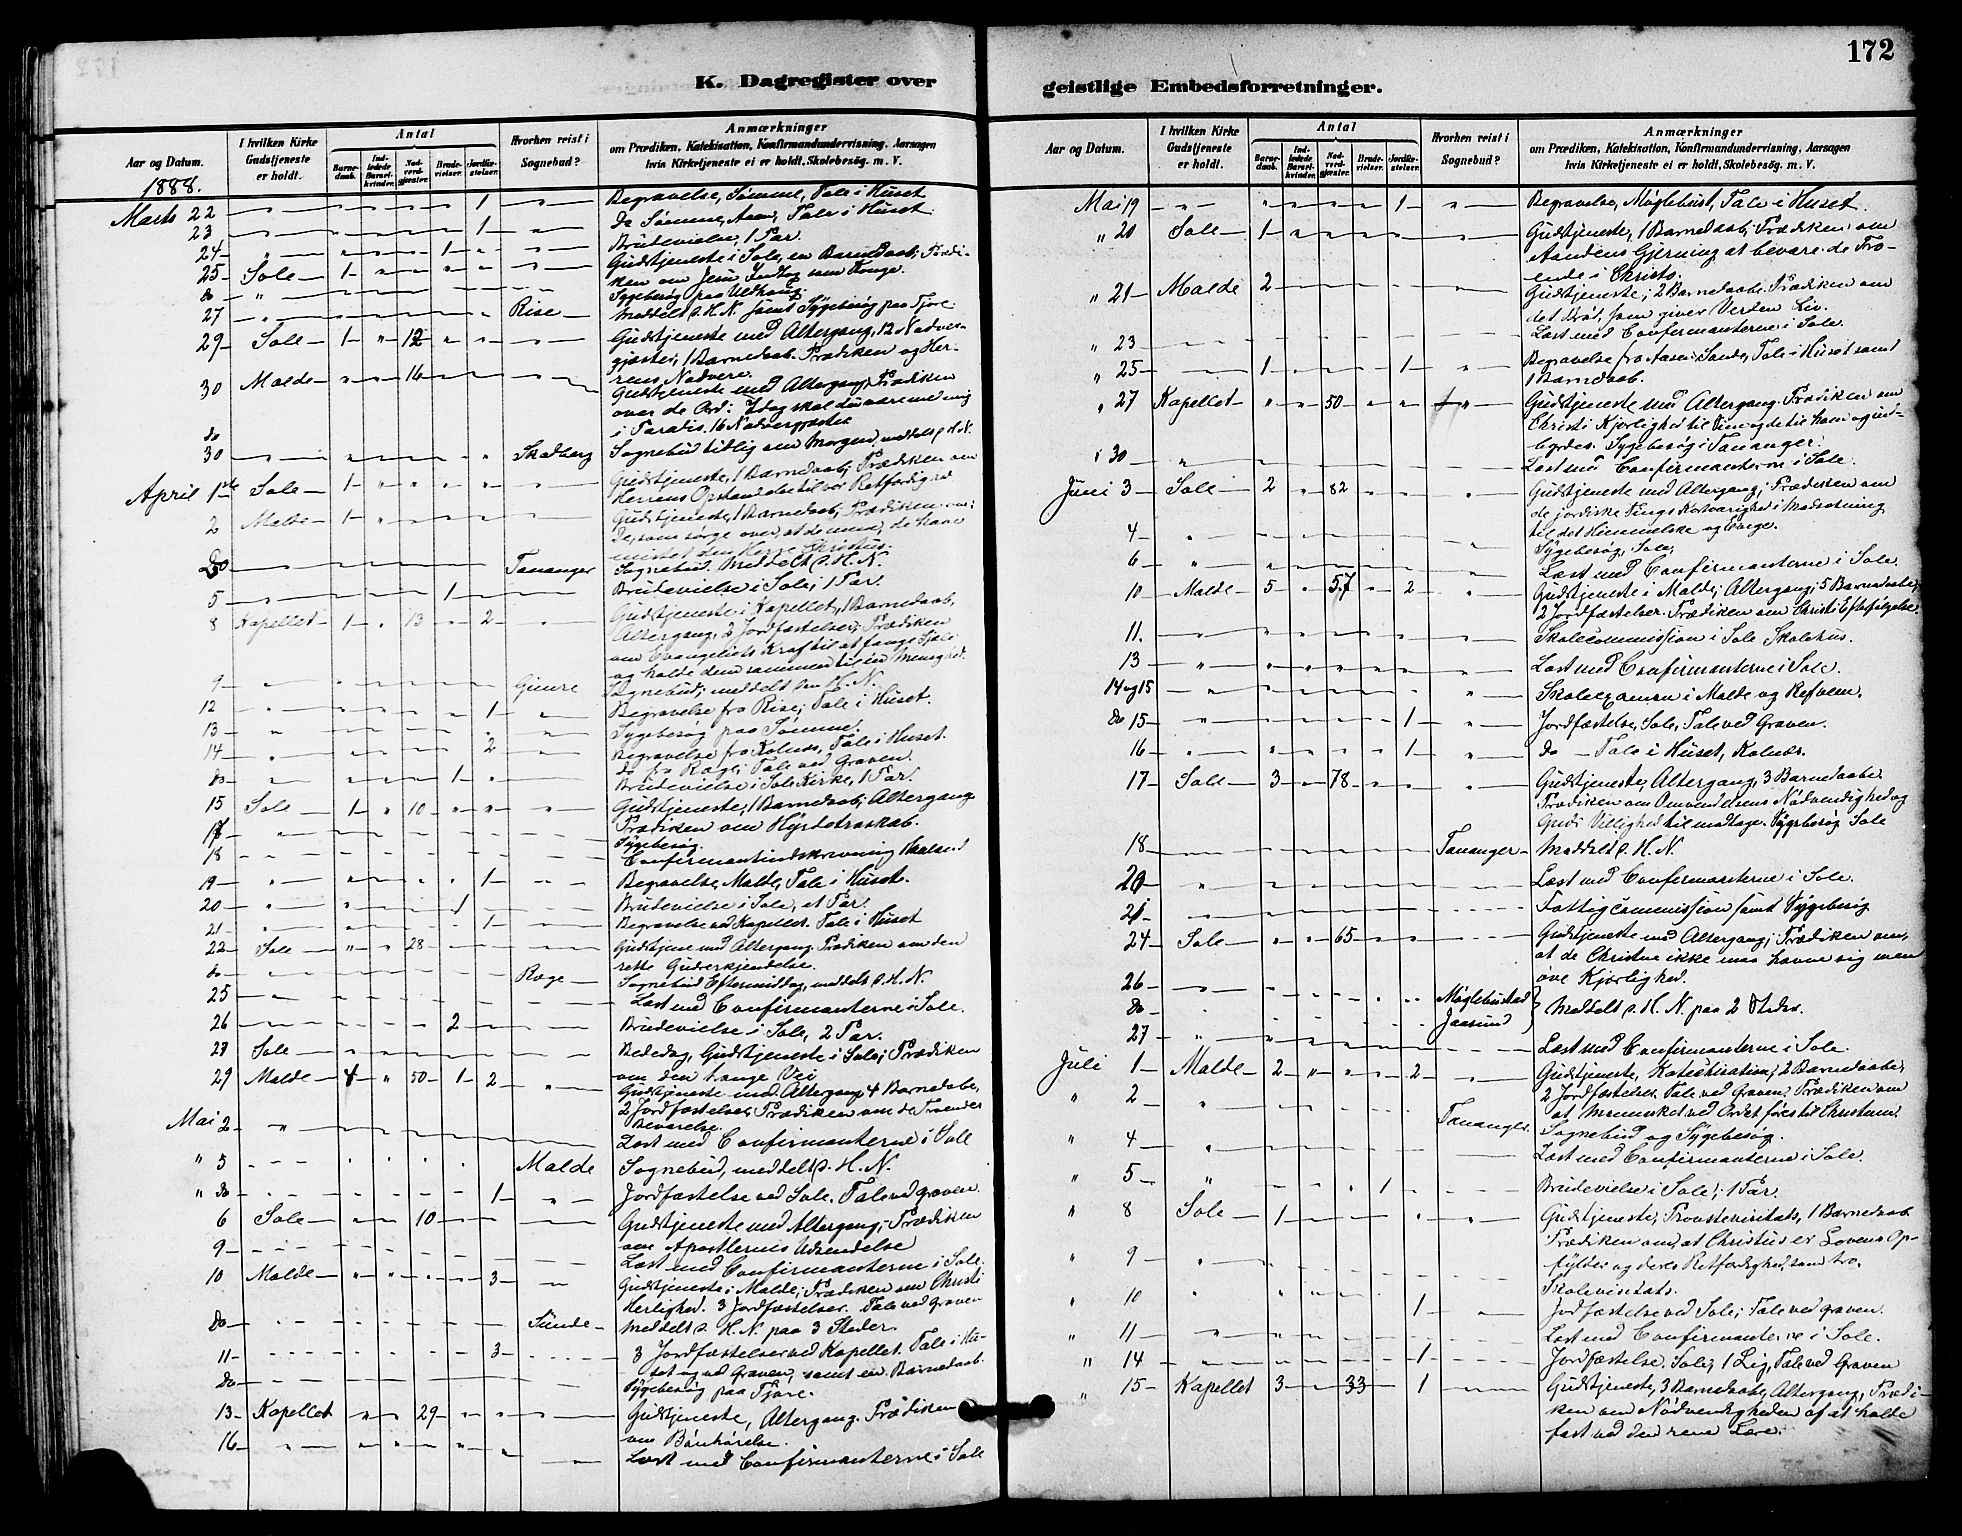 172
K. Dagregister over geistlige Embedsforretninger.
Aar og Datum. | I hvilken Kirke Gudstjeneste er holdt. | Antal | Barnedaab. | Indledede Barselkvinder. | Nadverdgjester. | Brudevielser. | Jordfæstelser. | Hvorhen reist i Sognebud? | Anmærkninger om Prædiken, Katekisation, Konfirmandundervisning, Aarsagen hvis Kirketjeneste ei er holdt, Skolebesög. m. V.
1888.
Marts 22 1 Begravelse, Sømme, Tale i Huset
23 1 Do Sømme, Aasen, Tale i Huset.
24 1 Brudevielse, 1 Par.
25 Sole 1 Gudstjeneste i Sole, en Barnedaab; Prædi-
ken om Jesu Indtog som Konge.
do " Sygebesøg paa Uldhoug.
27 " Rise Meddelt s. H. N. samt Sygebesøg paa Tjore.
29 Sole 1 12 Gudstjeneste med Altergang, 12 Nadver-
gjæster, 1 Barnedaab. Prædiken og Her-
rens Nadvere.
30 Malde 16 Gudstjeneste med Altergang, Prædiken
over de Ord: Idag skal du være med mig
i Paradis. 16 Nadvergjæster.
do
30 Skadberg Sognebud tidlig om Morgen, meddelt s. H. N.
April 1ste Sole 1 Gudstjeneste, 1 Barnedaab; Prædiken om
Herrens Opstandelse til vor Retfærdighed
2 Malde 1 Gudstjeneste, 1 Barnedaab; Prædiken om:
De, som sørge over, at de mene, de have
mistet den Herre Christus.
Do Tananger Sognebud. Meddelt s. H. N.
5 1 Brudevielse i Sole, 1 Par.
8 Kapellet 1 13 2 Gudstjeneste i Kapellet, 1 Barnedaab,
Altergang, 2 Jordfæstelser; Prædiken
om Evangeliets Kraft til at fange Sjæle
og holde dem sammen til en Menighed.
9 " Gimre Sognebud; meddelt s. H. N.
12 " 1 Begravelse fra Rise; Tale i Huset.
13 " Sygebesøg paa Sømme.
14 " 2 Begravelse fra Kolnæs, Tale i Huset.
do fra Rægi; Tale ved Graven.
do 1 Brudevielse i Sole Kirke, 1 Par.
15 Sole 1 10 Gudstjeneste, 1 Barnedaab; Altergang
Prædiken om Hyrdetroskab.
17 Sygebesøg.
18 Confirmantindskrivning
19 1 Begravelse, Malde, Tale i Huset.
20 1 Brudevielse i Sole, et Par.
21 1 Begravelse ved Kapellet. Tale i Huset
22 Sole 28 Gudstjene med Altergang. Prædiken om den
rette Guderkjendelse.
do Røge Sognebud Eftermiddag, meddelt s. H. N.
25 Læst med Confirmanterne i Sole.
26 2 Brudevielse i Sole, 2 Par.
27 Sole Bededag, Gudstjeneste i Sole; Prædiken
om den trange Vei
29 Malde 4 50 1 2 Gudstjeneste med Altergang, 4 Barnedaabe,
2 Jordfæstelser, Prædiken om de Troendes
Bevarelse.
Mai 2 " Læst med Confirmanterne i Sole
" 5 Malde Sognebud, meddelt s. H. N.
" do 1 Jordfæstelse ved Sole. Tale ved graven.
6 Sole 10 Gudstjeneste med Altergang; Prædiken
om Apostlernes Udsendelse
9 Læst med Confirmanterne i Sole.
10 Malde 3 Gudstjeneste i Malde; Prædiken om Christi
Herlighed. 3 Jordfæstelser. Tale ved Graven
Do Sunde Meddelt s. H. N. paa 3 Steder.
11 3 3 Jordfæstelser ved Kapellet. Tale i Hu-
set og ved Graven, samt en Barnedaab.
do Sygebesøg paa Tjore.
13 Kapellet 29 Gudstjeneste, Altergang. Prædiken
om Bønhørelse.
16 Læst med Confirmanterne i Sole
Aar og Datum. | I hvilken Kirke Gudstjeneste er holdt. | Antal | Barnedaab. | Indledede Barselkvinder. | Nadverdgjester. | Brudevielser. | Jordfæstelser. | Hvorhen reist i Sognebud? | Anmærkninger om Prædiken, Katekisation, Konfirmandundervisning, Aarsagen hvis Kirketjeneste ei er holdt, Skolebesög. m. V.
Mai 19 1 Begravelse, Møglebust, Tale i Huset.
" 20 Sole 1 Gudstjeneste, 1 Barnedaab; Prædiken om
Aandens Gjerning at bevare de Tro-
ende i Christo.
" 21 Malde 2 Gudstjeneste; 2 Barnedaabe. Prædiken om
det Brød, som giver Verden Liv.
" 23 Læst med Confirmanterne i Sole.
" 25 1 1 Begravelse fra Aasen, Sande, Tale i Huset samt
1 Barnedaab.
" 27 Kapellet 50 Gudstjeneste med Altergang. Prædiken om
Christi Kjærlighed til Sine og de til ham og ind-
byrdes. Sygebesøg i Tananger.
" 30 " Læst med Confirmanterne i Sole.
Juni 3 Sole 2 82 Gudstjeneste med Altergang; Prædiken om
de jordiske Tings Kortvarighed i Modsætning
til det Himmelske og Evige.
4 " Sygebesøg, Sole,
6 " Læst med Confirmanterne i Sole.
10 Malde 5 57 2 Gudstjeneste i Malde; Altergang; 5 Barnedaabe;
2 Jordfæstelser. Prædiken om Christi Efterfølgelse.
11. Skolecommission i Sole Skolehus.
13 " Læst med Confirmanterne i Sole.
14 og 15 Skoleexamen i Malde og Refheim.
Do 15 1 Jordfæstelse, Sole, Tale ved Graven.
16 1 do – Tale i Huset, Kolnæs.
17 Sole 3 78 Gudstjeneste, Altergang, 3 Barnedaabe.
Prædiken om Omvendelsens Nødvendighed og
Guds Villighed til modtage. Sygebesøg Sole
18 Tananger Meddelt s. H. N.
20 " Læst med Confirmanterne i Sole.
21 Fattigcommission samt Sygebesøg
24 Sole 65 Gudstjeneste med Altergang; Prædiken om,
at de Christne ikke maa hevne sig men
øve Kjærlighed.
26 Møglebustad
Do Jaasund } Meddelt s. H. N. paa 2 Steder.
27 " Læst med Confirmanterne i Sole.
Juli 1 Malde 2 2 Gudstjeneste, Katekisation; 2 Barnedaabe;
2 Jordfæstelser. Tale ved Graven. Prædiken om
at Mennesket ved Ordet føres til Christum.
" 2 Tananger Sognebud og Sygebesøg.
" 4 Læst med Confirmanterne i Sole.
" 5 1 Brudevielse i Sole; 1 Par.
" 8 Sole 1 Gudstjeneste; Provstevisitats, 1 Barnedaab
Prædiken om, at Christus er Lovens Op-
fylder og deres Retfærdighed, som tro.
" 9 Skolevisitats.
" 10 1 Jordfæstelse ved Sole; Tale ved graven.
" 11 Læst med Confirmanterne i Sole.
" 14 1 Jordfæstelse, Sole, 1 Lig, Tale ved Graven
" 15 Kapellet 3 33 1 Gudstjeneste, 3 Barnedaabe, Altergang, Prædi-
ken om Nødvendigheden af at holde
fast ved den rene Lære.